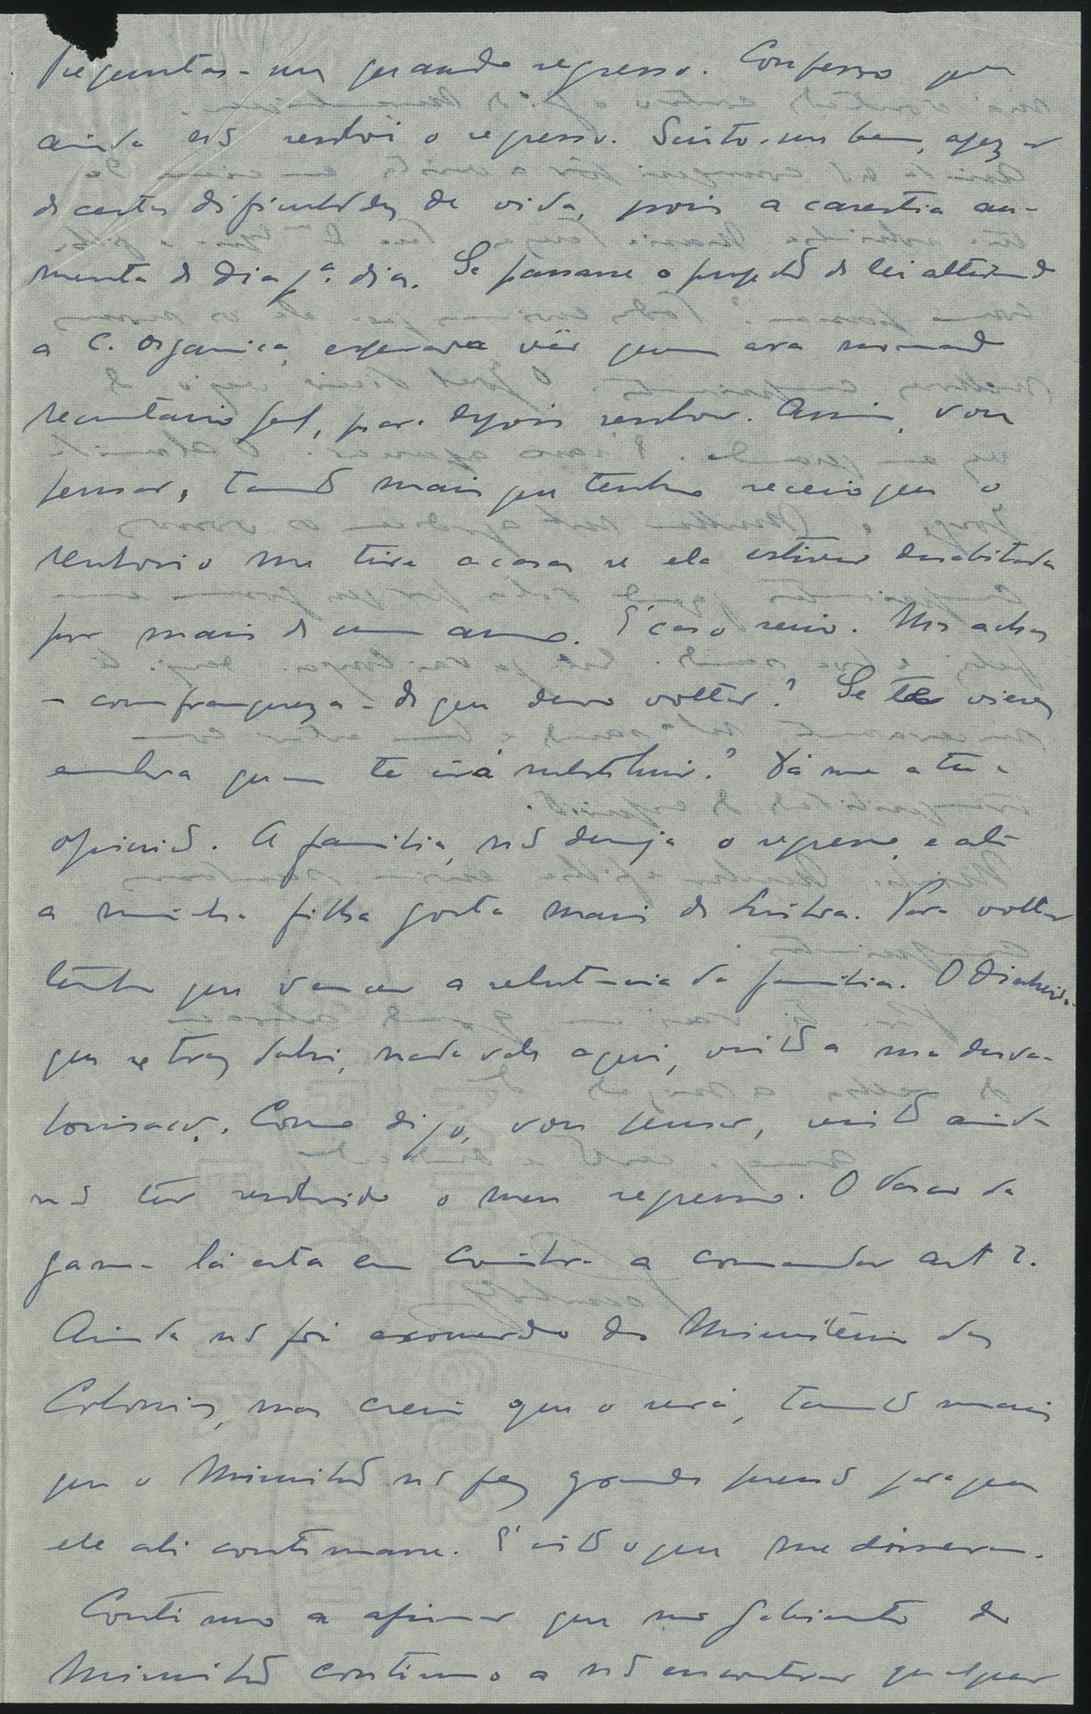 Preguntas-me quando regresso. Confesso que
ainda não resolvi o regresso. Sinto-me bem, apezar
de certas dificuldades da vida, pois a carestia au-
menta de dia pª dia. Se passasse o projecto de lei alterando
a C. Organica, esperava vêr quem era nomeado
secretario geral, para depois resolver. Assim, vou
pensar, tanto mais que tenho receio que o
senhorio me tire a casa se ela estiver desabitada
por mais de um ano. É caso serio. Mas achas
- com franqueza - de que devo voltar? Se te vieres
embora quem te irá substituir? Dá me a tua
opinião. A familia, não deseja o regresso, e até
a minha filha gosta mais de Lisboa. Para voltar
tenho que vencer a relutancia da familia. O dinheiro
que se traz dahi, nada vale aqui, visto a sua desva-
lorisação. Como digo, vou pensar, visto ainda
não ter resolvido o meu regresso. O Vasco da
Gama lá está em Coimbra a comandar art 2.
Ainda não foi exonerado do Ministerio das
Colonias, mas creio que o será, tanto mais
que o Ministro não fez grande pressão para que
ele ali continuasse. É isto o que me disseram.
Continuo a afirmar que no Gabinete do
Ministro continuo a não encontrar qualquer